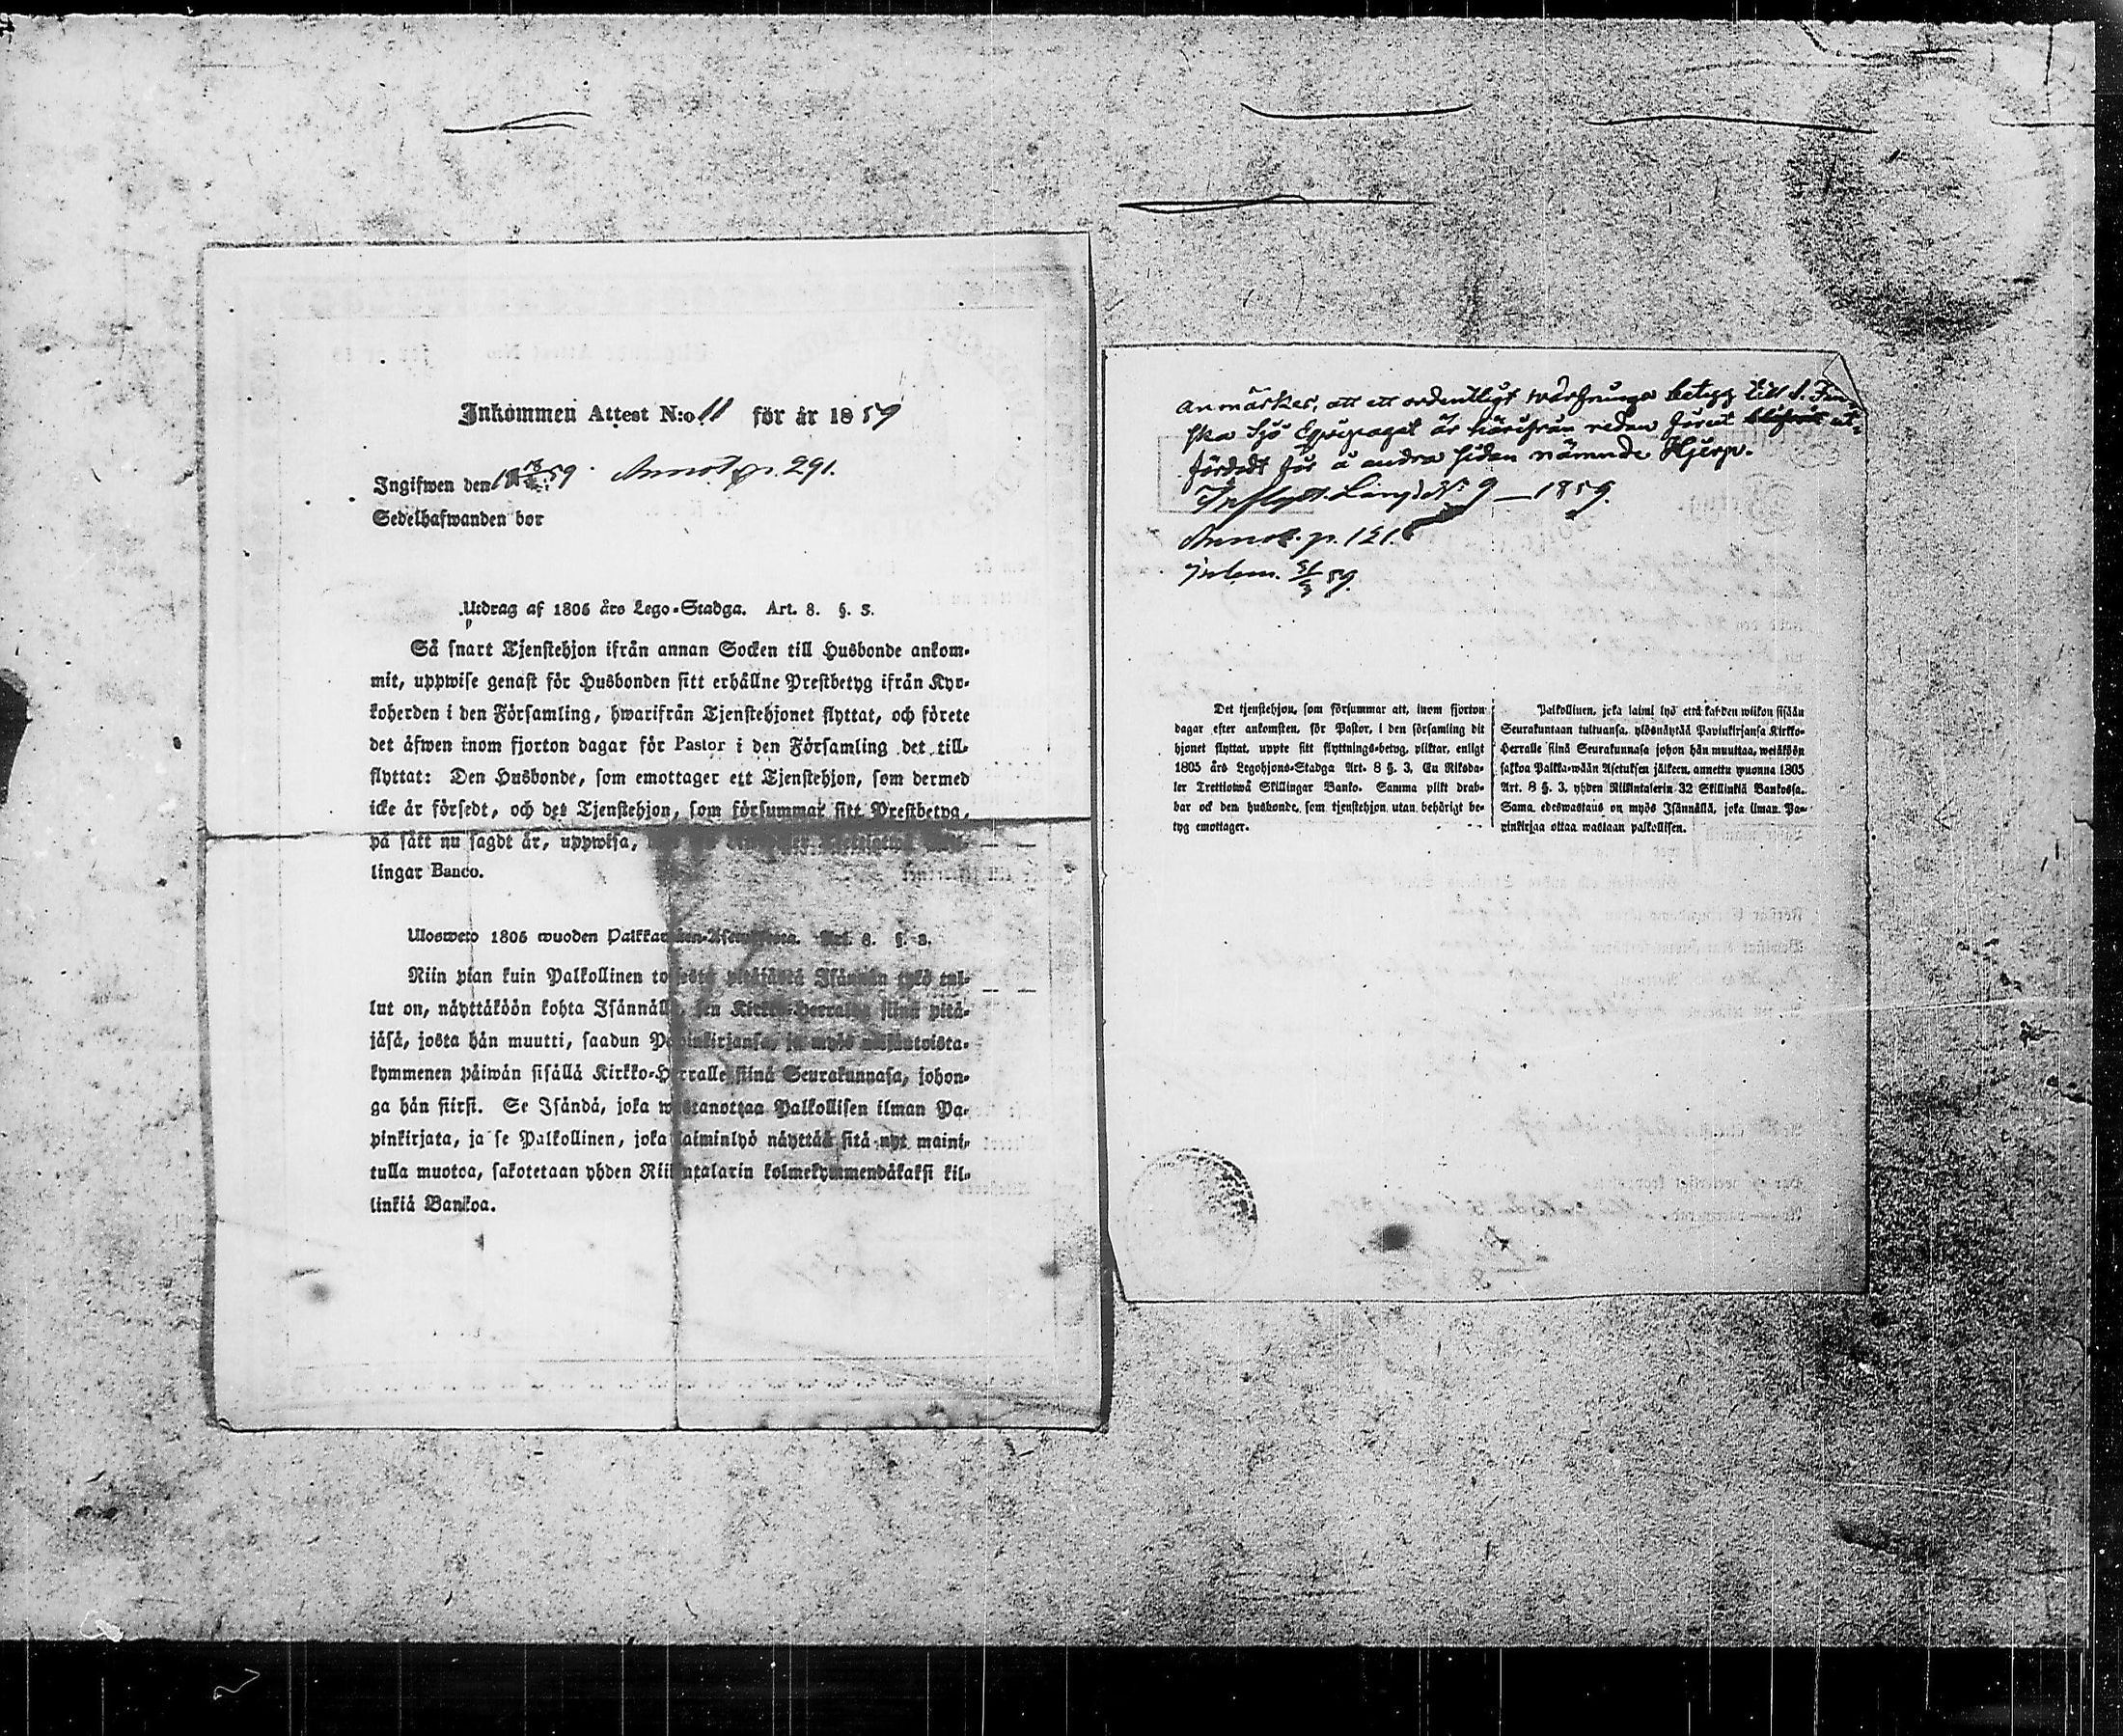 Inkommen Attest N:o 11 för år 1859
Ingifwen den 59. Annot. p. 291.
Sedelhafwanden bor
Utdrag af 1805 års Lego-Stadga. Art. 8. §. 3.
Så snart Tjenstehjon ifrån annan Socken till Husbonde ankom-
mit, uppwise genast för Husbonden sitt erhållne Prestbetyg ifrån Kyr-
koherden i den Församling, hwarifrån Tjenstehjonet flyttat, och förete
det äfwen inom fjorton dagar för Pastor i den Församling det till-
flyttat: Den Husbonde, som emottager ett Tjenstehjon, som dermed
icke är försedt, och det Tjenstehjon, som försummar sitt Prestbetyg,
på sätt nu sagdt är, uppwisa,
lingar Banco.
Uloswero 1805 wuoden Palkawäen-Asetuksesta. Art. 8. §. 3.
Niin pian kuin Palkollinen toisesta pitäjästä Isännän tykö tul-
lut on, näyttäköön kohta Isännälle, sen Kirkko-Herralta siinä pitä-
jäsä, josta hän muutti, saadun Papinkirjansa, ja myös neljäntoista-
kymmenen päiwän sisällä Kirkko-Herralle siinä Seurakunnasa, johon-
ga hän siirsi. Se Isändä, joka wastanottaa Palkollisen ilman Pa-
pinkirjata, ja se Palkollinen, joka laiminlyö näyttää sitä nyt maini-
tulla muotoa, sakotetaan yhden Riikintalarin kolmekymmendäkaksi kil-
linkiä Bankoa.
anmärkes, att ett ordentligt wärfnings betyg till 1. Fin-
ska Sjö Equipaget är härifrån redan förut ut-
färdadt för å andra sidan nämnde Hjerp.
Inflytt. Längd N:o 9 — 1859.
Annot. p. 121.
Inkom. 31/3 59.
Det tjenstehjon, som försummar att, inom fjorton
dagar efter ankomsten, för Pastor, i den församling dit
hjonet flyttat, uppte sitt flyttnings-betyg, pliktar, enligt
1805 års Legohjons-Stadga Art. 8 §. 3, En Riksda-
ler Trettiotwå Skillingar Banko. Samma plikt drab-
bar ock den husbonde, som tjenstehjon utan behörigt be-
tyg emottager.
Palkollinen, joka laimi lyö että kahden wiikon sisään
Seurakuntaan tultuansa, ylösnäytää Papinkirjansa Kirkko-
Herralle siinä Seurakunnasa johon hän muuttaa, wetäköön
sakkoa Palkka-wään Asetuksen jälkeen, annettu wuonna 1805
Art. 8 §. 3, yhden Riikintalerin 32 Skillinkiä Bankossa.
Sama edeswastaus on myös Isännällä, joka ilman Pa-
pinkirjaa ottaa wastaan palkollisen.